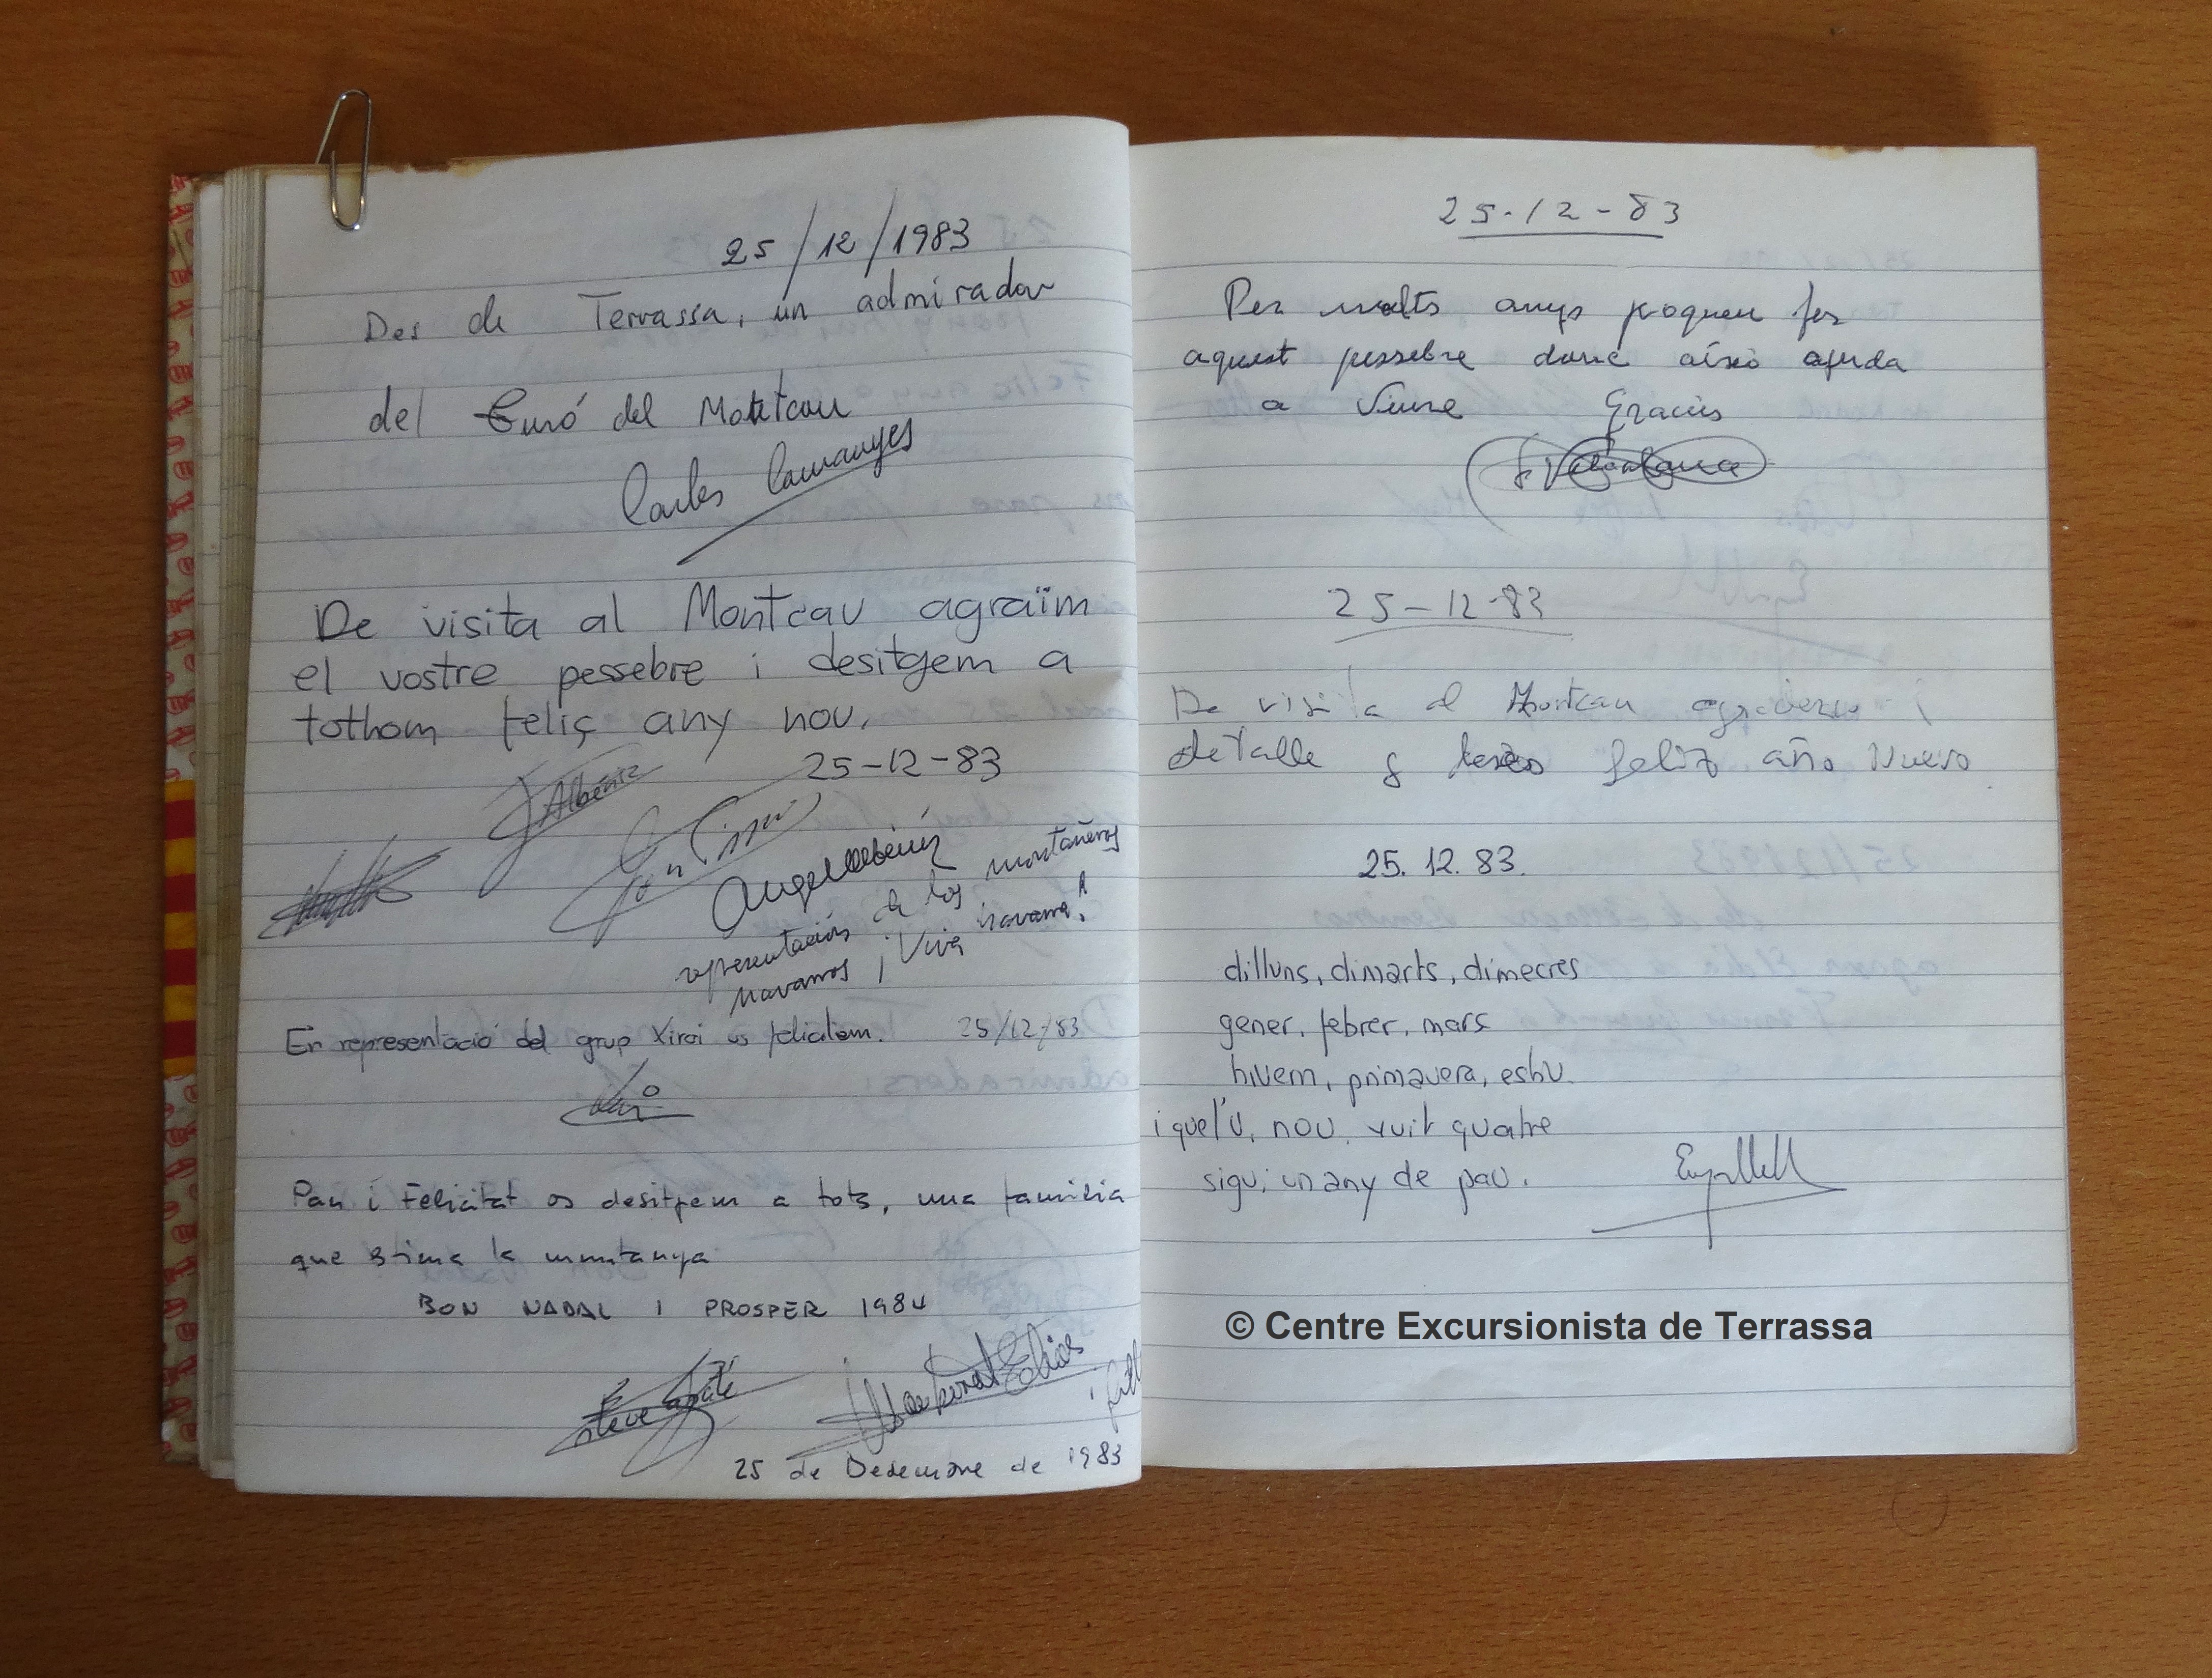 25/12/1983
Des de Terrassa, un admirador
del Turó del Montcau
Carles Comanyes
De visita al Montcau agraïm
el vostre pessebre i desitgem a
tothom feliç any nou.
25-12-83
J Albéniz
Angel Albéniz
representación de los montañeros
navarros ¡Viva navarra!
En representació del grup Xiroi us felicitem. 25/12/83
Pau i Felicitat os desitgem a tots, una familia
que estima la muntanya
BON NADAL I PROSPER 1984
Esteve
Montserrat Elias
25 de Desembre de 1983
25-12-83
Per molts anys pogueu fer
aquest pessebre donc aixó ajuda
a viure Gracies
25-12-83
De visita al Montcau
detalle y feliz año Nuevo
25. 12. 83.
dilluns, dimarts, dimecres
gener, febrer, març
hivern, primavera, estiu
i quel'u, nou, vuit quatre
sigui un any de pau.
© Centre Excursionista de Terrassa